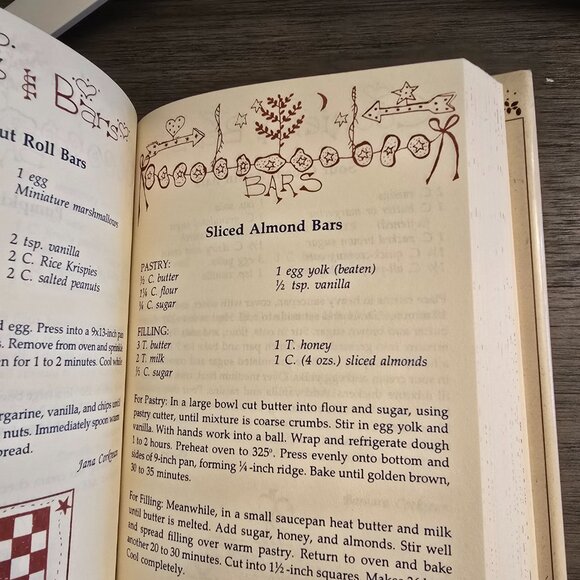 & Bars
ut Roll Bars
1 egg
Miniature marshmallows
2 tsp. vanilla
2 C. Rice Krispies
2 C. salted peanuts
d egg. Press into a 9x13-inch pan
s. Remove from oven and sprinkle
en for 1 to 2 minutes. Cool while
argarine, vanilla, and chips until
nuts. Immediately spoon warm
pread.
Jana
BARS
Sliced Almond Bars
PASTRY:
½ C. butter
1¼ C. flour
¼ C. sugar
1 egg yolk (beaten)
½ tsp. vanilla
FILLING:
3 T. butter
2 T. milk
½ C. sugar
1 T. honey
1 C. (4 ozs.) sliced almonds
For Pastry: In a large bowl cut butter into flour and sugar, using
pastry cutter, until mixture is coarse crumbs. Stir in egg yolk and
vanilla. With hands work into a ball. Wrap and refrigerate dough
1 to 2 hours. Preheat oven to 325°. Press evenly onto bottom and
sides of 9-inch pan, forming ¼-inch ridge. Bake until golden brown,
30 to 35 minutes.
For Filling: Meanwhile, in a small saucepan heat butter and milk
until butter is melted. Add sugar, honey, and almonds. Stir well
and spread filling over warm pastry. Return to oven and bake
another 20 to 30 minutes. Cut into 1½-inch squares. Makes
Cool completely.